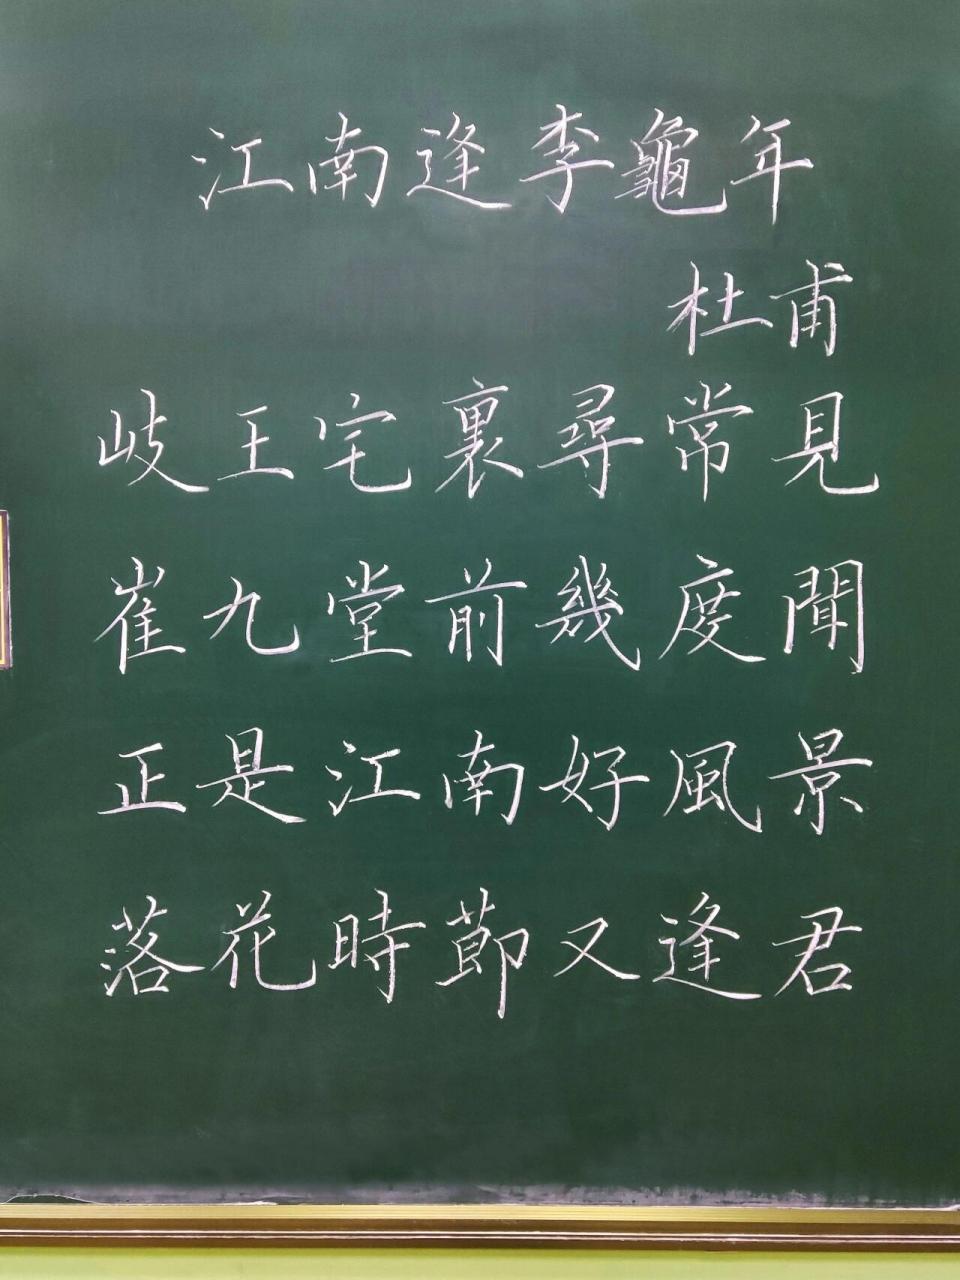 江南逢李龜年
杜甫
岐王宅裏尋常見
崔九堂前幾度聞
正是江南好風景
落花時節又逢君